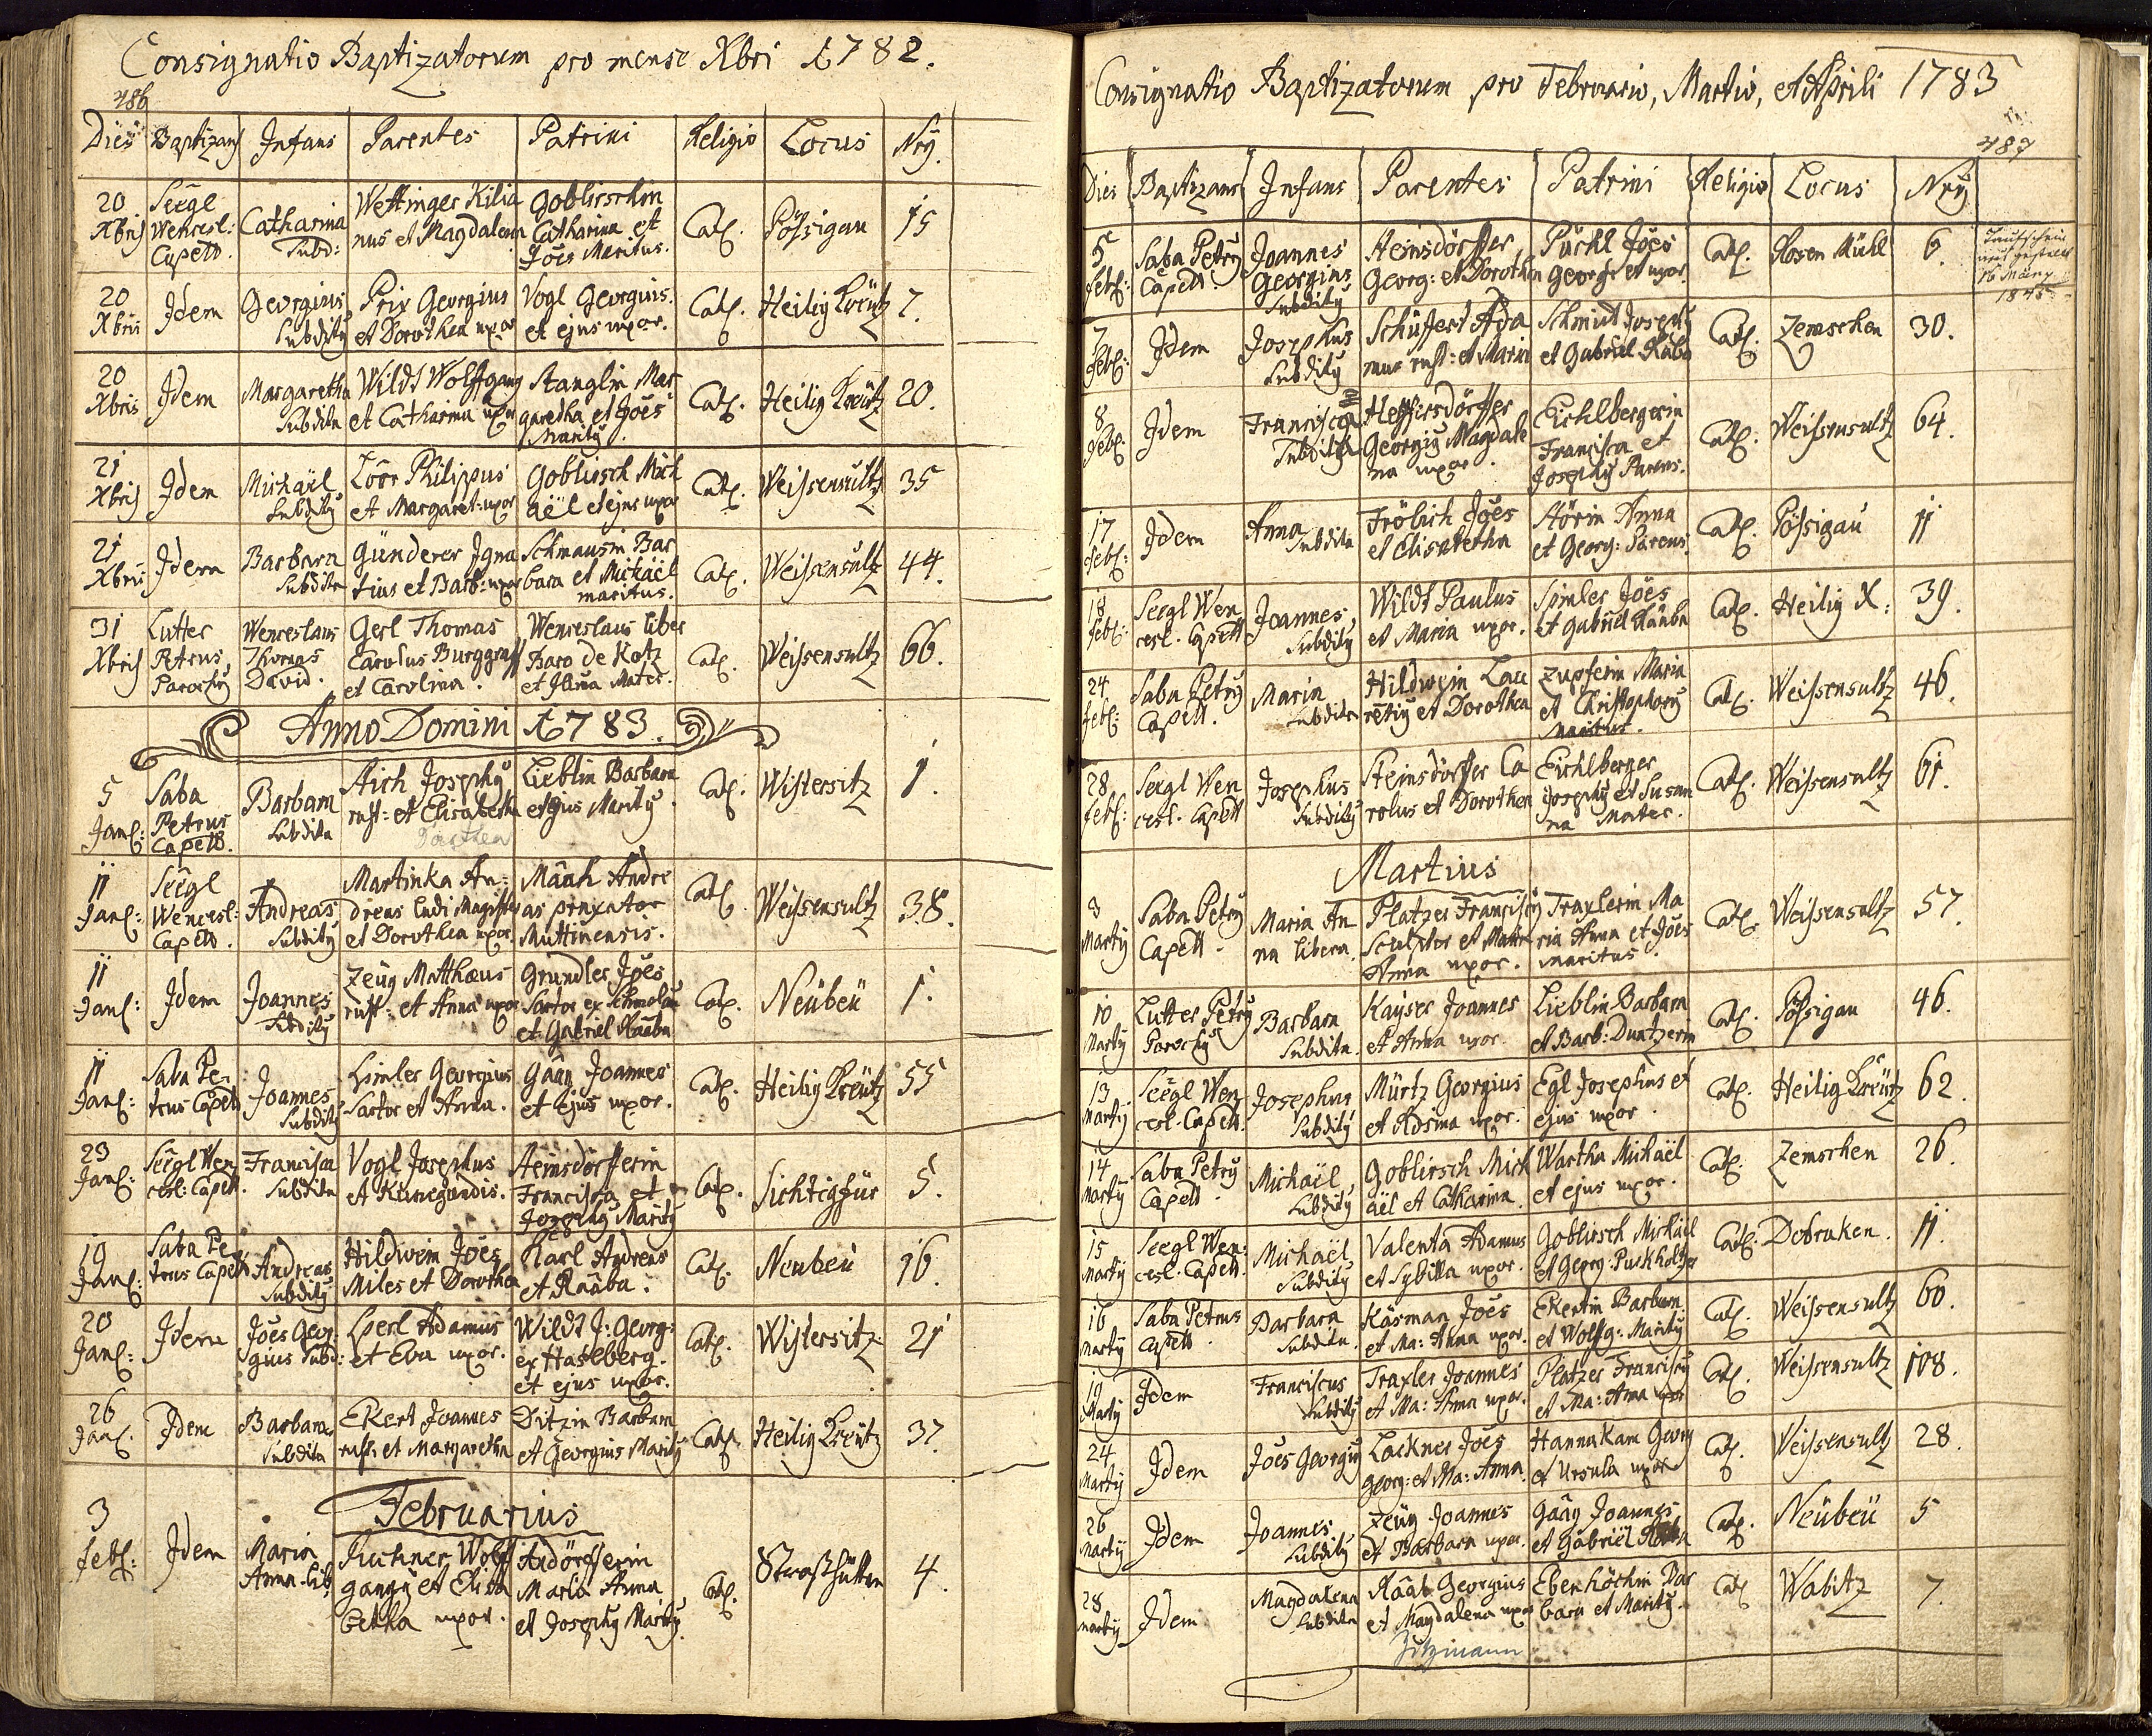 Consignatio Baptizatorum pro mense Xbri 1782.
486
Dies Baptizans Infans Parentes Patrini Religio Locus Nrg.
20 Xbris Seegl Wencesl: Capell. Catharina Subd: Wettinger Kilia nus et Magdalena Goblirschin Catharina et Joes Maritus. Cat. Pössigau 15
20 Xbris Idem Georgius Subditg Prix Georgius et Dorothea uxor Vogl Georgius et ejus uxor. Cat. Heilig Creutz 7.
20 Xbris Idem Margaretha Subdita Wildt Wolffgang et Catharina uxor Stanglin Mar garetha et Joes Maritg. Cat. Heilig Creutz 20.
21 Xbris Idem Michaël Subditg Löor Philippus et Margaret: uxor Goblirsch Mich aël et ejus uxor Cat. Weissensultz 35
21 Xbris Idem Barbara Subdita Günderer Igna tius et Barb: uxor Schmausin Bar bara et Michaël maritus. Cat. Weissensultz 44.
31 Xbris Lutter Petrus, Parochg Wenceslaus Thomas David. Gerl Thomas Carolus Burggraff et Carolina. Wenceslaus liber Baro de Kotz et Mater. Cat. Weissensultz 66.
Anno Domini 1783.
5 Jan: Saba Petrus Capell. Barbara Subdita Aich Josephg rust: et Elisabetha Dorothea Lieblin Barbara et ejus Maritg. Cat. Wistersitz 1.
11 Jan: Seegl Wencesl: Capell. Andreas Subditg Martinka An: dreas ludi Magister et Dorothea uxor. Maah Andre as Muttinensis. Cat. Weissensultz 38.
11 Jan: Idem Joannes Subditg Zeüg Matthaeus rust: et Anna uxor Grundler Joes Sartor ex et Gabriel Raaba Cat. Neübeü 1.
11 Jan: Saba Pe: trus Capell Joannes Subditg Spinler Georgius Sartor et Anna. Gaag Joannes et ejus uxor. Cat. Heilig Creutz 55
23 Jan: Seegl Wen cesl: Capell. Francisca Subdita Vogl Josephus et Kunegundis. Steinsdörfferin Francisca et Josephg Maritg Cat. Sichtigfür 5.
19 Jan: Saba Pe trus Capell Andreas Subditg Hildwein Joes Miles et Dorothea Karl Andreas et Raaba. Cat. Neübeü 16.
20 Jan: Idem Joes Geor gius Subd: Sperl Adamus et Eva uxor. Wildt J: Georg: ex Haselberg. et ejus uxor. Cat. Wistersitz 21
26 Jan: Idem Barbara Subdita Ekert Joannes rust: et Margaretha Ditzin Barbara et Georgius Maritg Cat. Heilig Creutz 37.
Februarius
3 feb: Idem Maria Anna lib: Kuchner Wolff gangg et Elisa betha uxor. Andörfferin Maria Anna et Josephg Maritg. Cat. Strasshütten 4.
Consignatio Baptizatorum pro Februario, Martio, et Aprili 1783
487
Dies Baptizans Infans Parentes Patrini Religio Locus Nrg
5 feb: Saba Petrg Capell. Joannes Georgius Subditg Heinsdörffer Georg: et Dorothea Püchl Joes Georg: et uxor. Cat. Hosen Mühl 6. Taufschein 16 März 1845
7 feb: Idem Josephus Subditg Schüffert Ada mus rust: et Maria Schmidt Josephg et Gabriel Raaba Cat. Zemschen 30.
8 feb: Idem Francisca Subdita Heffirsdörffer Georgig Magdale na uxor. Eichlbergerin Francisca et Josephg Parens. Cat. Weissensultz 64.
17 feb: Idem Anna Subdita Frölich Joes et Elisabetha Störin Anna et Georg: Parens. Cat. Pössigau 11
18 feb: Seegl Wen cesl. Capell Joannes Subditg Wildt Paulus et Maria uxor. Spinler Joes et Gabriel Raaba Cat. Heilig X: 39.
24. feb: Saba Petrg Capell. Maria Subdita Hildwein Lau rentig et Dorothea Zupferin Maria et Christophorg Maritus. Cat. Weissensultz 46.
28 feb: Seegl Wen cesl. Capell Josephus Subditg Steinsdörffer Ca rolus et Dorothea Eichlberger Josephg et Susan na Mater. Cat. Weissensultz 61.
Martius
8 Martg Saba Petrg Capell. Maria An na libera. Platzer Franciscg Sculptor et Maria Anna uxor. Traxlerin Ma ria Anna et Joes maritus. Cat. Weissensultz 57.
10 Martg Lutter Petrg Parochg Barbara Subdita. Kayser Joannes et Anna uxor. Lieblin Barbara et Barb: Duntzerin Cat. Pössigau 46.
13. Martg Seegl Wen cesl. Capell. Josephus Subditg Mürtz Georgius et Rosina uxor. Egl Josephus et ejus uxor. Cat. Heilig Creutz 62.
14 Martg Saba Petrg Capell. Michaël, Subditg Goblirsch Mich aël et Catharina. Wartha Michaël et ejus uxor. Cat. Zemschen 26.
15 Martg Seegl Wen: cesl. Capell. Michaël Subditg Valenta Adamus et Sybilla uxor. Goblirsch Michaël et Georg: Puckholtzer Cat. Dobraken. 11.
16 Martg Saba Petrus Capell. Barbara Subdita. Käsman Joes et Ma: Anna uxor. Ekertin Barbara et Wolfg: Maritg Cat. Weissensultz 60.
19 Martg Idem Franciscus Subditg Traxler Joannes et Ma: Anna uxor. Platzer Franciscg et Ma: Anna uxor Cat. Weissensultz 108.
24 Martg Idem Joes Georgig Lockner Joes Georg: et Ma: Anna. Hannakam Georg et Ursula uxor Cat. Weissensultz 28.
26 Martg Idem Joannes Subditg Zeüg Joannes et Barbara uxor. Gaag Joannes et Gabriël Raaba Cat. Neübeü 5
28 Martg Idem Magdalena Subdita Raab Georgius et Magdalena uxor Ebenhöchin Bar bara et Maritg. Cat. Wabitz 7.